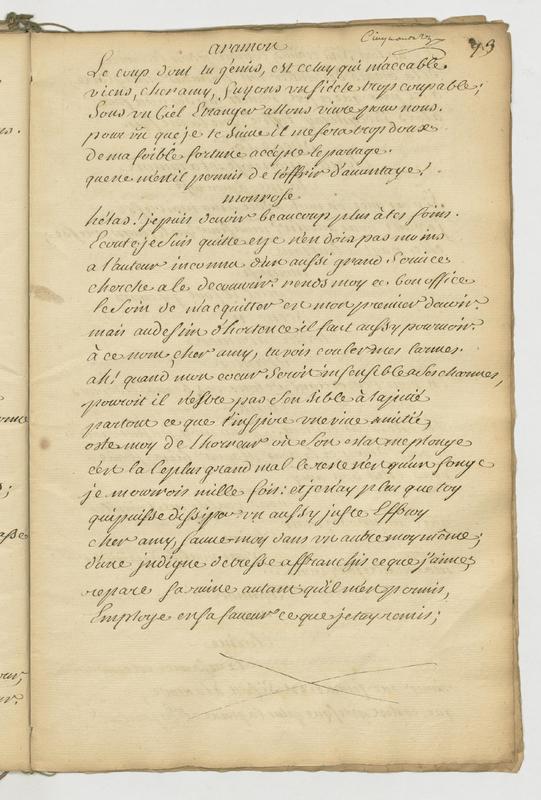 93
aramon
Le coup dont tu gemis, est celuy qui m'accable
viens, cher amy, fuyons un siécle trop coupable;
Sous un Ciel Etranger allons vivre pour nous.
pour vû que je te suive il me sera trop doux
de ma foible fortune accepte le partage.
que ne m'est il permis de t'offrir d'avantage!
monrose
hélas! je puis devoir beaucoup plus à tes soins.
Ecoute, je suis quitte et je n'en dois pas moins
a l'auteur inconnu d'un aussi grand service
cherche a le decouvrir. rends moy ce bon office
le soin de m'acquitter est mon premier devoir.
mais au destin d'hortence il faut aussy pourvoir.
à ce nom, cher amy, tu vois couler mes larmes.
ah! quand mon coeur seroit insensible a ses charmes,
pourroit il n'estre pas sensible à la pitié
partout ce que t'inspire une vive amitié,
oste moy de l'horreur où son estat me plonge
c'est la le plus grand mal le reste n'est qu'un songe
je mourrois mille fois: et je n'ay plus que toy
qui puisse dissiper un aussy juste Effroy
cher amy, sauve moy dans un autre moy même;
d'une indigne detresse affranchis ce que j'aime;
repare sa ruine autant qu'il m'est permis,
Employe en sa faveur ce que je t'ay remis;